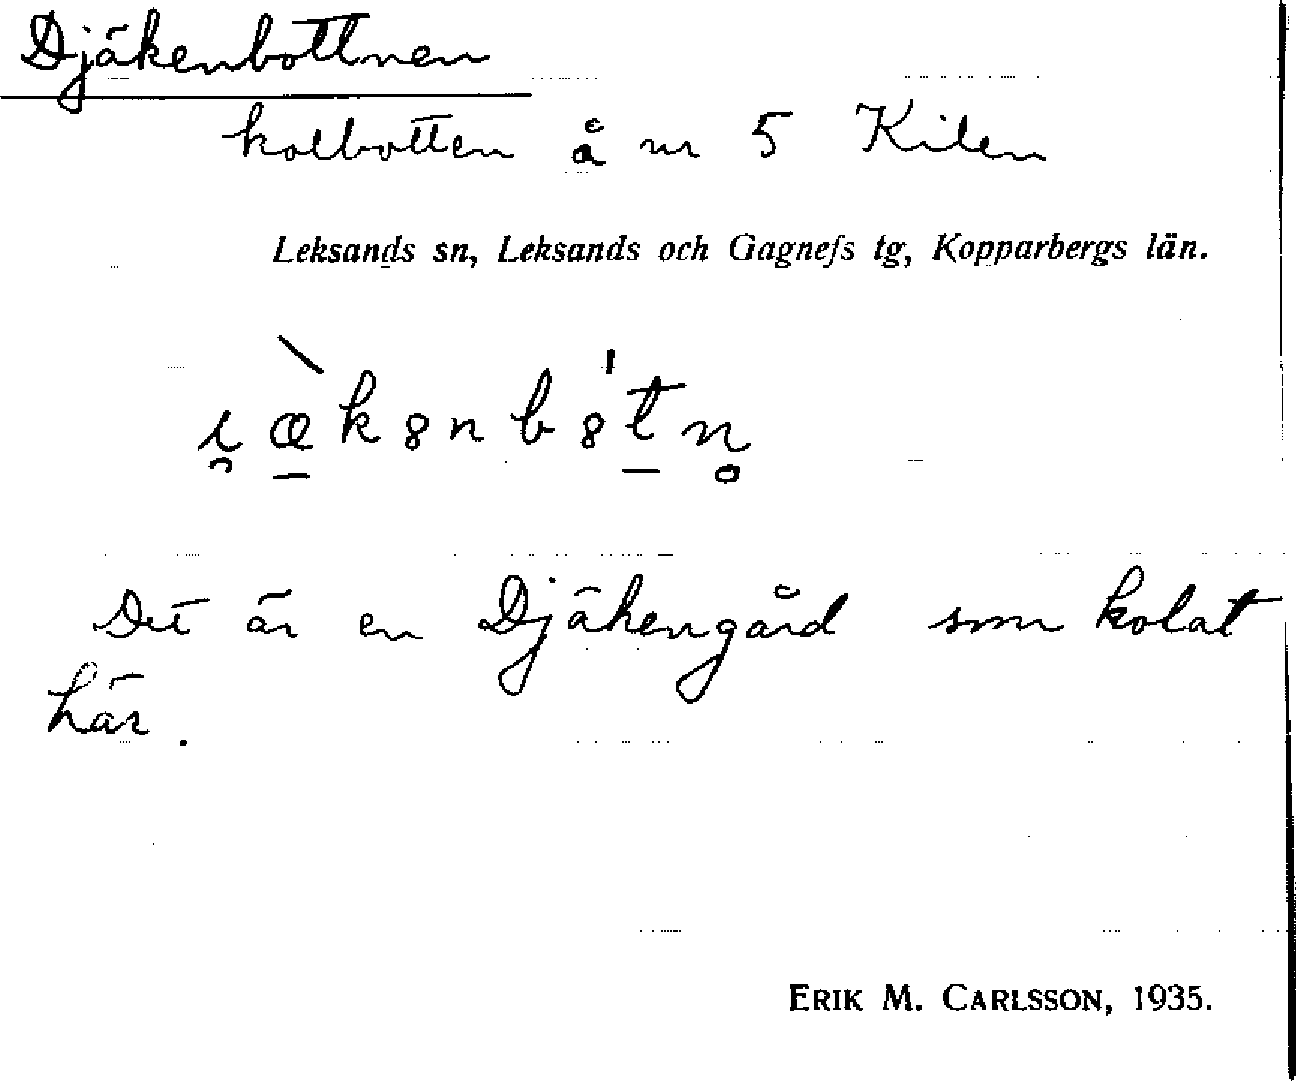 Djäkenbottnen
kolbotten å nr 5 Kilen
Leksands sn, Leksands och Gagnefs tg, Kopparbergs län.
Det är en Djäkengård som kolat
här.
ERIK M. CARLSSON, 1935.